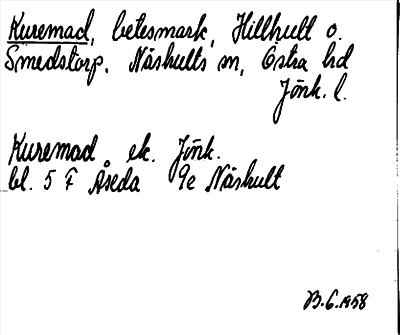 Kuremad, betesmark, Hillhult o.
Smedstorp. Näshults sn, Östra hd
Jönk. l.
Kuremad ek. Jönk.
bl. 5 F Åseda 9e Näshult
B.G. 1958